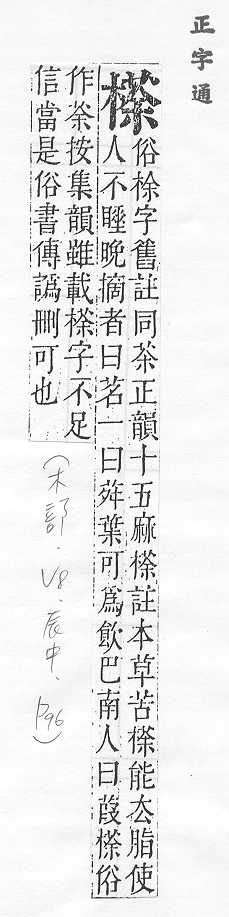 正字通
𣘻
俗梌字舊註同茶正韻十五麻𣘻註本草苦𣘻能厺脂使
人不睡晚摘者曰茗一曰荈葉可爲飮巴南人曰葭𣘻俗
作茶按集韻雖載𣘻字不足
信當是俗書傳譌刪可也
(木部.V8.辰中.P96)